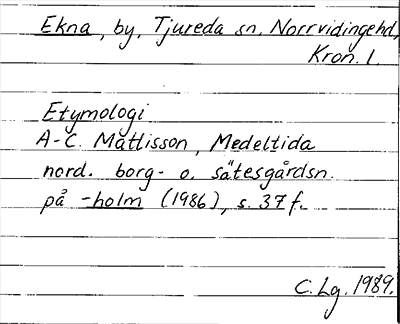 Ekna, by, Tjureda sn. Norrvidingehd,
Kron. l.
Etymologi
A-C. Mattisson, Medeltida
nord. borg- o. sätesgårdsn.
på -holm (1986), s. 37 f.
C. Lg. 1989.